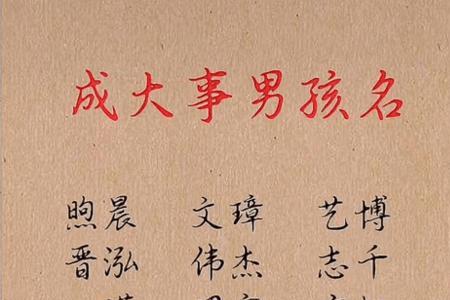 成大事男孩名
煦晨 文璋 艺博
晋泓 伟杰 志千